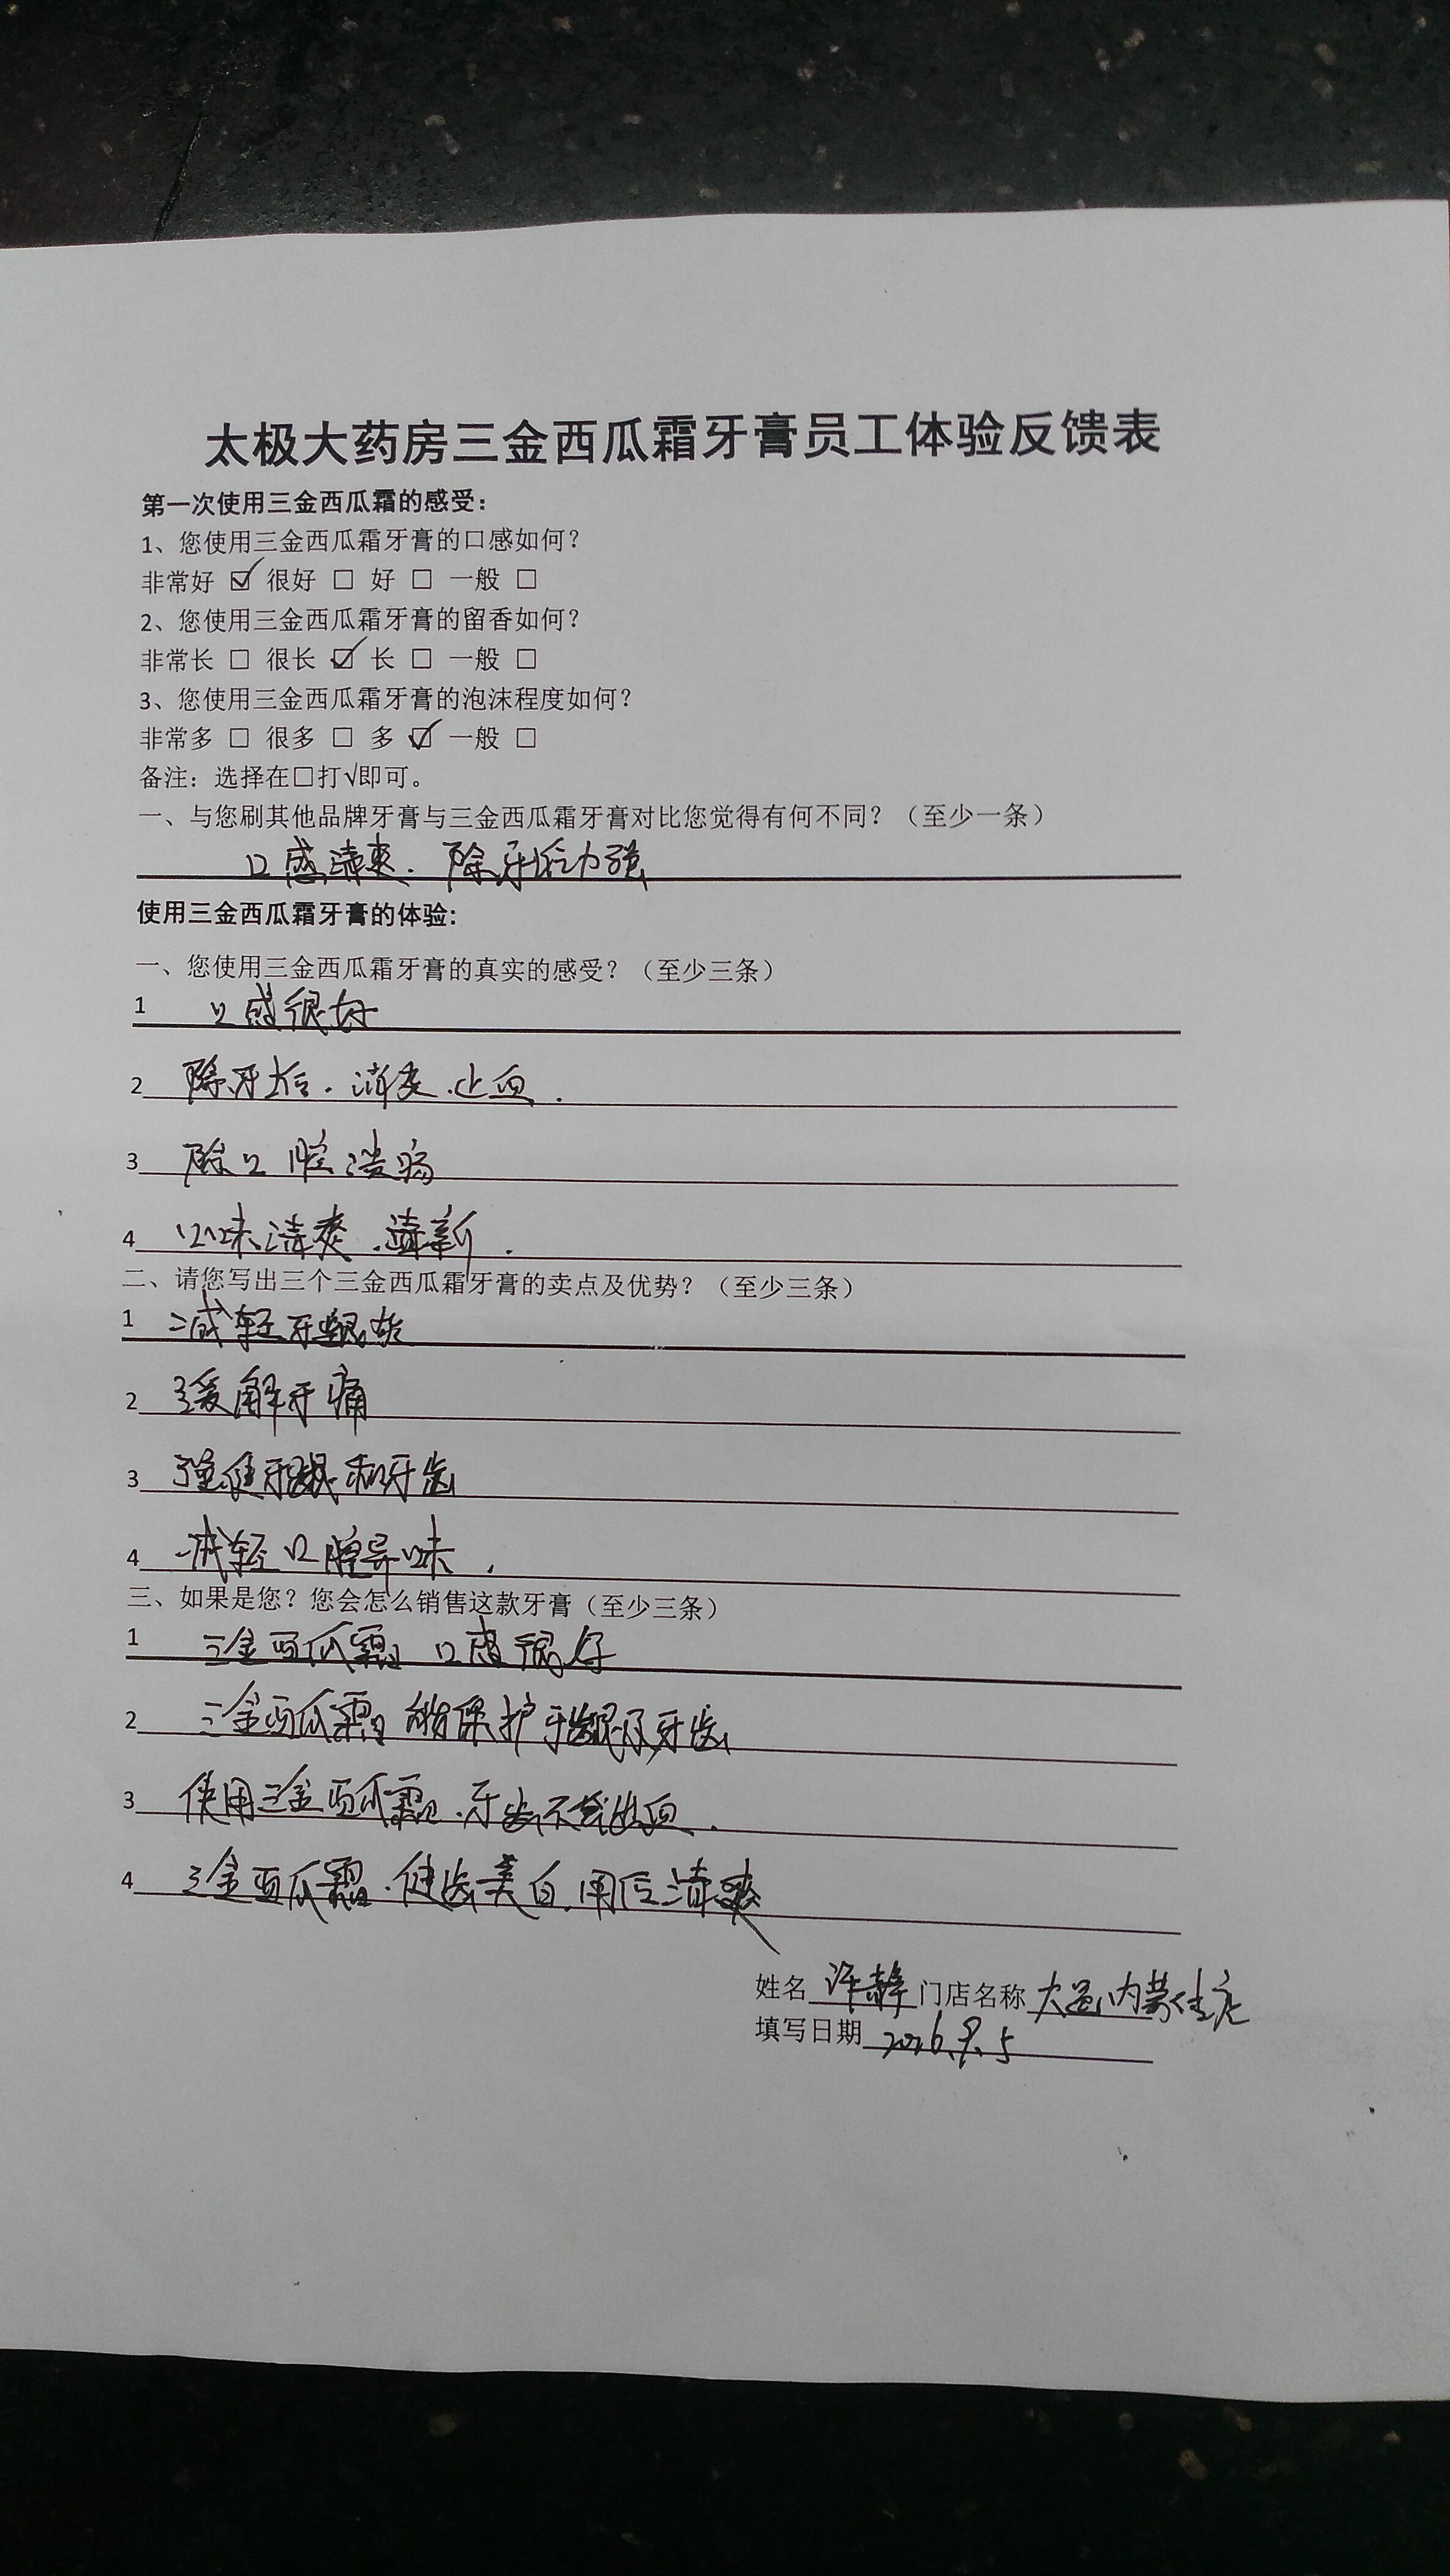 太极大药房三金西瓜霜牙膏员工体验反馈表
第一次使用三金西瓜霜的感受：
1、您使用三金西瓜霜牙膏的口感如何？
非常好 ☑ 很好 □ 好 □ 一般 □
2、您使用三金西瓜霜牙膏的留香如何？
非常长 □ 很长 ☑ 长 □ 一般 □
3、您使用三金西瓜霜牙膏的泡沫程度如何？
非常多 □ 很多 □ 多 ☑ 一般 □
备注：选择在□打√即可。
一、与您刷其他品牌牙膏与三金西瓜霜牙膏对比您觉得有何不同？（至少一条）
口感清爽.除牙垢力强
使用三金西瓜霜牙膏的体验:
一、您使用三金西瓜霜牙膏的真实的感受？（至少三条）
1 口感很好
2 除牙垢.消炎.止血.
3 除口腔溃疡
4 口味清爽.清新.
二、请您写出三个三金西瓜霜牙膏的卖点及优势？（至少三条）
1 减轻牙龈
2 缓解牙痛
3 强健牙龈和牙齿
4 减轻口腔异味.
三、如果是您？您会怎么销售这款牙膏（至少三条）
1 三金西瓜霜 口感很好
2 三金西瓜霜 能保护牙龈及牙齿
3 使用三金西瓜霜.牙齿不出血.
4 三金西瓜霜.健齿美白.用后清爽
姓名 许静 门店名称 大邑内蒙店
填写日期 2016.9.5